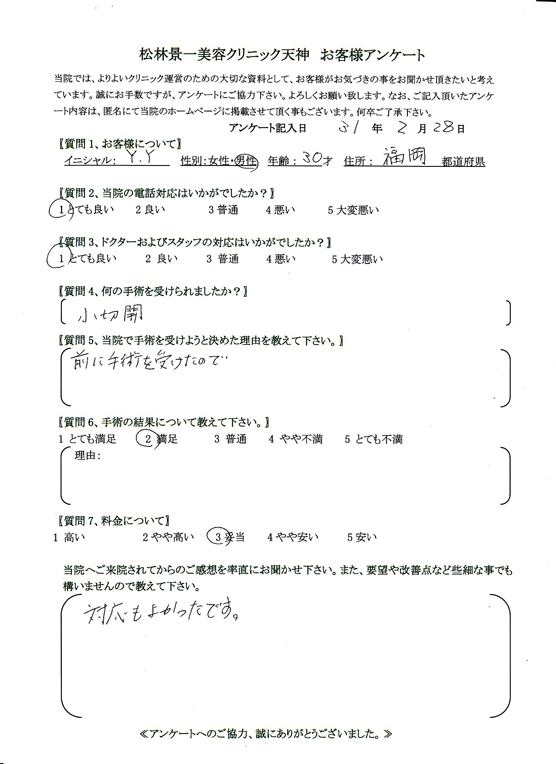 松林景一美容クリニック天神　お客様アンケート
当院では、よりよいクリニック運営のための大切な資料として、お客様がお気づきの事をお聞かせ頂きたいと考え
ています。誠にお手数ですが、アンケートにご協力下さい。よろしくお願い致します。なお、ご記入頂いたアンケ
ート内容は、匿名にて当院のホームページに掲載させて頂く事もございます。何卒ご了承下さい。
アンケート記入日　31　年　2　月　28日
〖質問1、お客様について〗
イニシャル：Y.Y　性別：女性・男性　年齢：30才　住所：福岡　都道府県
〖質問2、当院の電話対応はいかがでしたか？〗
1とても良い　2良い　3普通　4悪い　5大変悪い
〖質問3、ドクターおよびスタッフの対応はいかがでしたか？〗
1とても良い　2 良い　3 普通　4悪い　5大変悪い
〖質問4、何の手術を受けられましたか？〗
小切開
〖質問5、当院で手術を受けようと決めた理由を教えて下さい。〗
前に手術を受けたので
〖質問6、手術の結果について教えて下さい。〗
1 とても満足　2 満足　3 普通　4 やや不満　5 とても不満
理由：
〖質問7、料金について〗
1 高い　2やや高い　3妥当　4やや安い　5安い
当院へご来院されてからのご感想を率直にお聞かせ下さい。また、要望や改善点など些細な事でも
構いませんので教えて下さい。
対応もよかったです。
≪アンケートへのご協力、誠にありがとうございました。≫